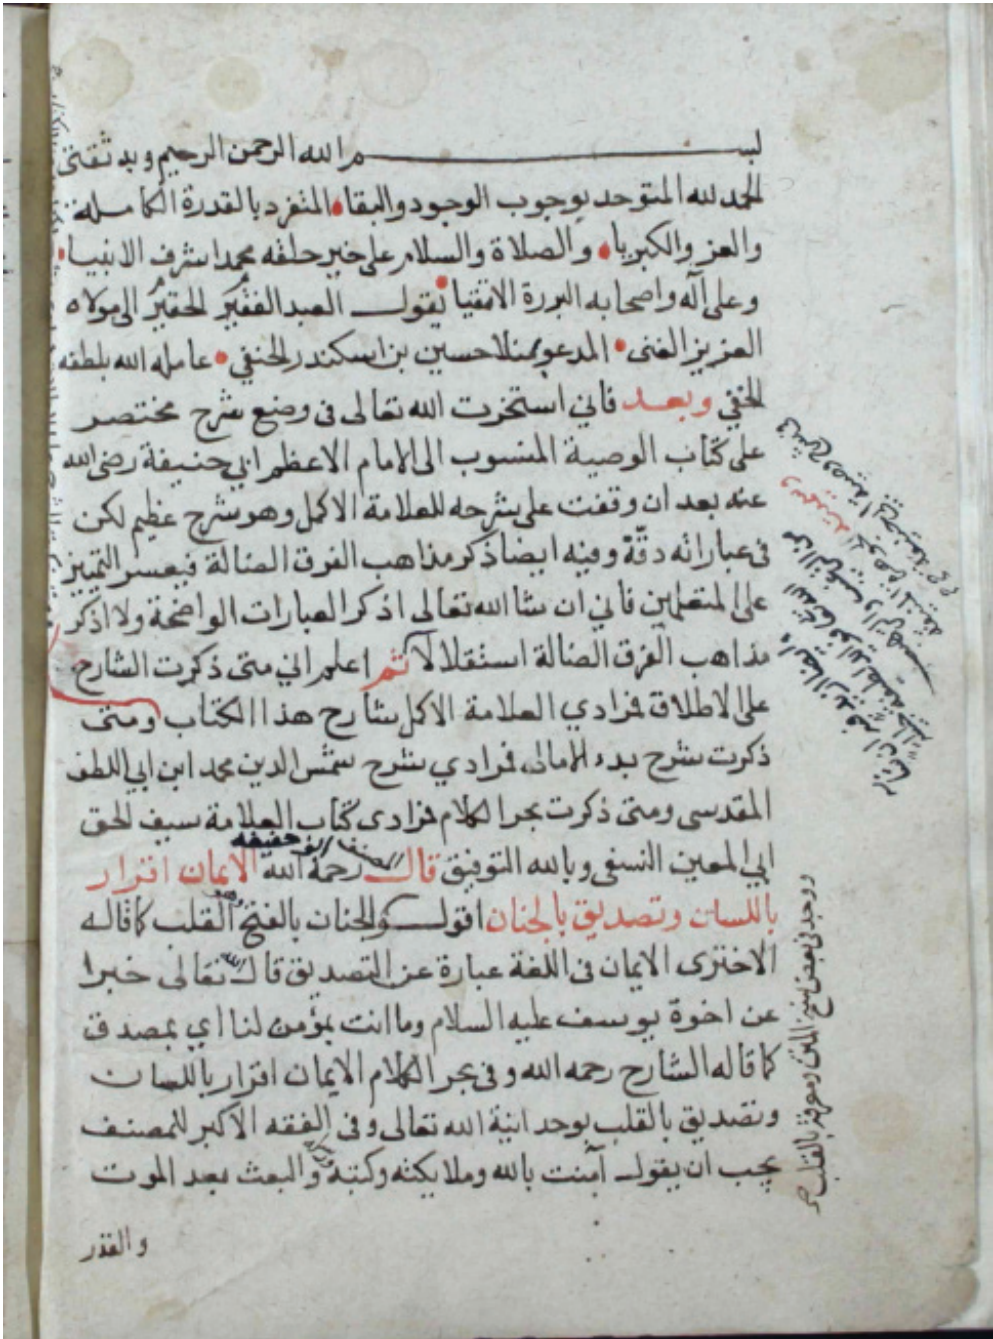 بسم الله الرحمن الرحيم وبه ثقتي
الحمد لله المتوحد بوجوب الوجود والبقا المنفرد بالقدرة الكاملة
والعز والكبريا والصلاة والسلام على خير خلقه محمد اشرف الانبيا
وعلى آله واصحابه البررة الاتقيا يقول العبد الفقير الحقير الى مولاه
العزيز الغني المدعو بمنلا حسين بن اسكندر الحنفي عامله الله بلطفه
الخفي وبعد فاني استخرت الله تعالى في وضع شرح مختصر
على كتاب الوصية المنسوب الى الامام الاعظم ابي حنيفة رضي الله
عنه بعد ان وقفت على شرحه للعلامة الاكمل وهو شرح عظيم لكن
في عباراته دقة وفيه ايضا ذكر مذاهب الفرق الضالة فيعسر التمييز
على المتعلمين فاني ان شا الله تعالى اذكر العبارات الواضحة ولا اذكر
مذاهب الفرق الضالة استقلالا ثم اعلم اني متى ذكرت الشارح
على الاطلاق فمرادي العلامة الاكمل شارح هذا الكتاب ومتى
ذكرت شرح بدء الامالي فمرادي شرح شمس الدين محمد ابن ابي اللطف
المقدسي ومتى ذكرت بحر الكلام فمرادي كتاب العلامة سيف الحق
ابي المعين النسفي وبالله التوفيق قال المصنف ابو حنيفه رحمه الله الايمان اقرار
باللسان وتصديق بالجنان اقول والجنان بالفتح وهو القلب كما قاله
الاختري الايمان في اللغة عبارة عن التصديق قال الله تعالى خبرا
عن اخوة يوسف عليه السلام وما انت بمؤمن لنا اي بمصدق
كما قاله الشارح رحمه الله وفي بحر الكلام الايمان اقرار باللسان
وتصديق بالقلب بوحدانية الله تعالى وفي الفقه الاكبر للمصنف
يجب ان يقول آمنت بالله وملايكته وكتبه ورسله والبعث بعد الموت
والقدر
ووجد في بعض نسخ المتن ومعرفة بالقلب صح